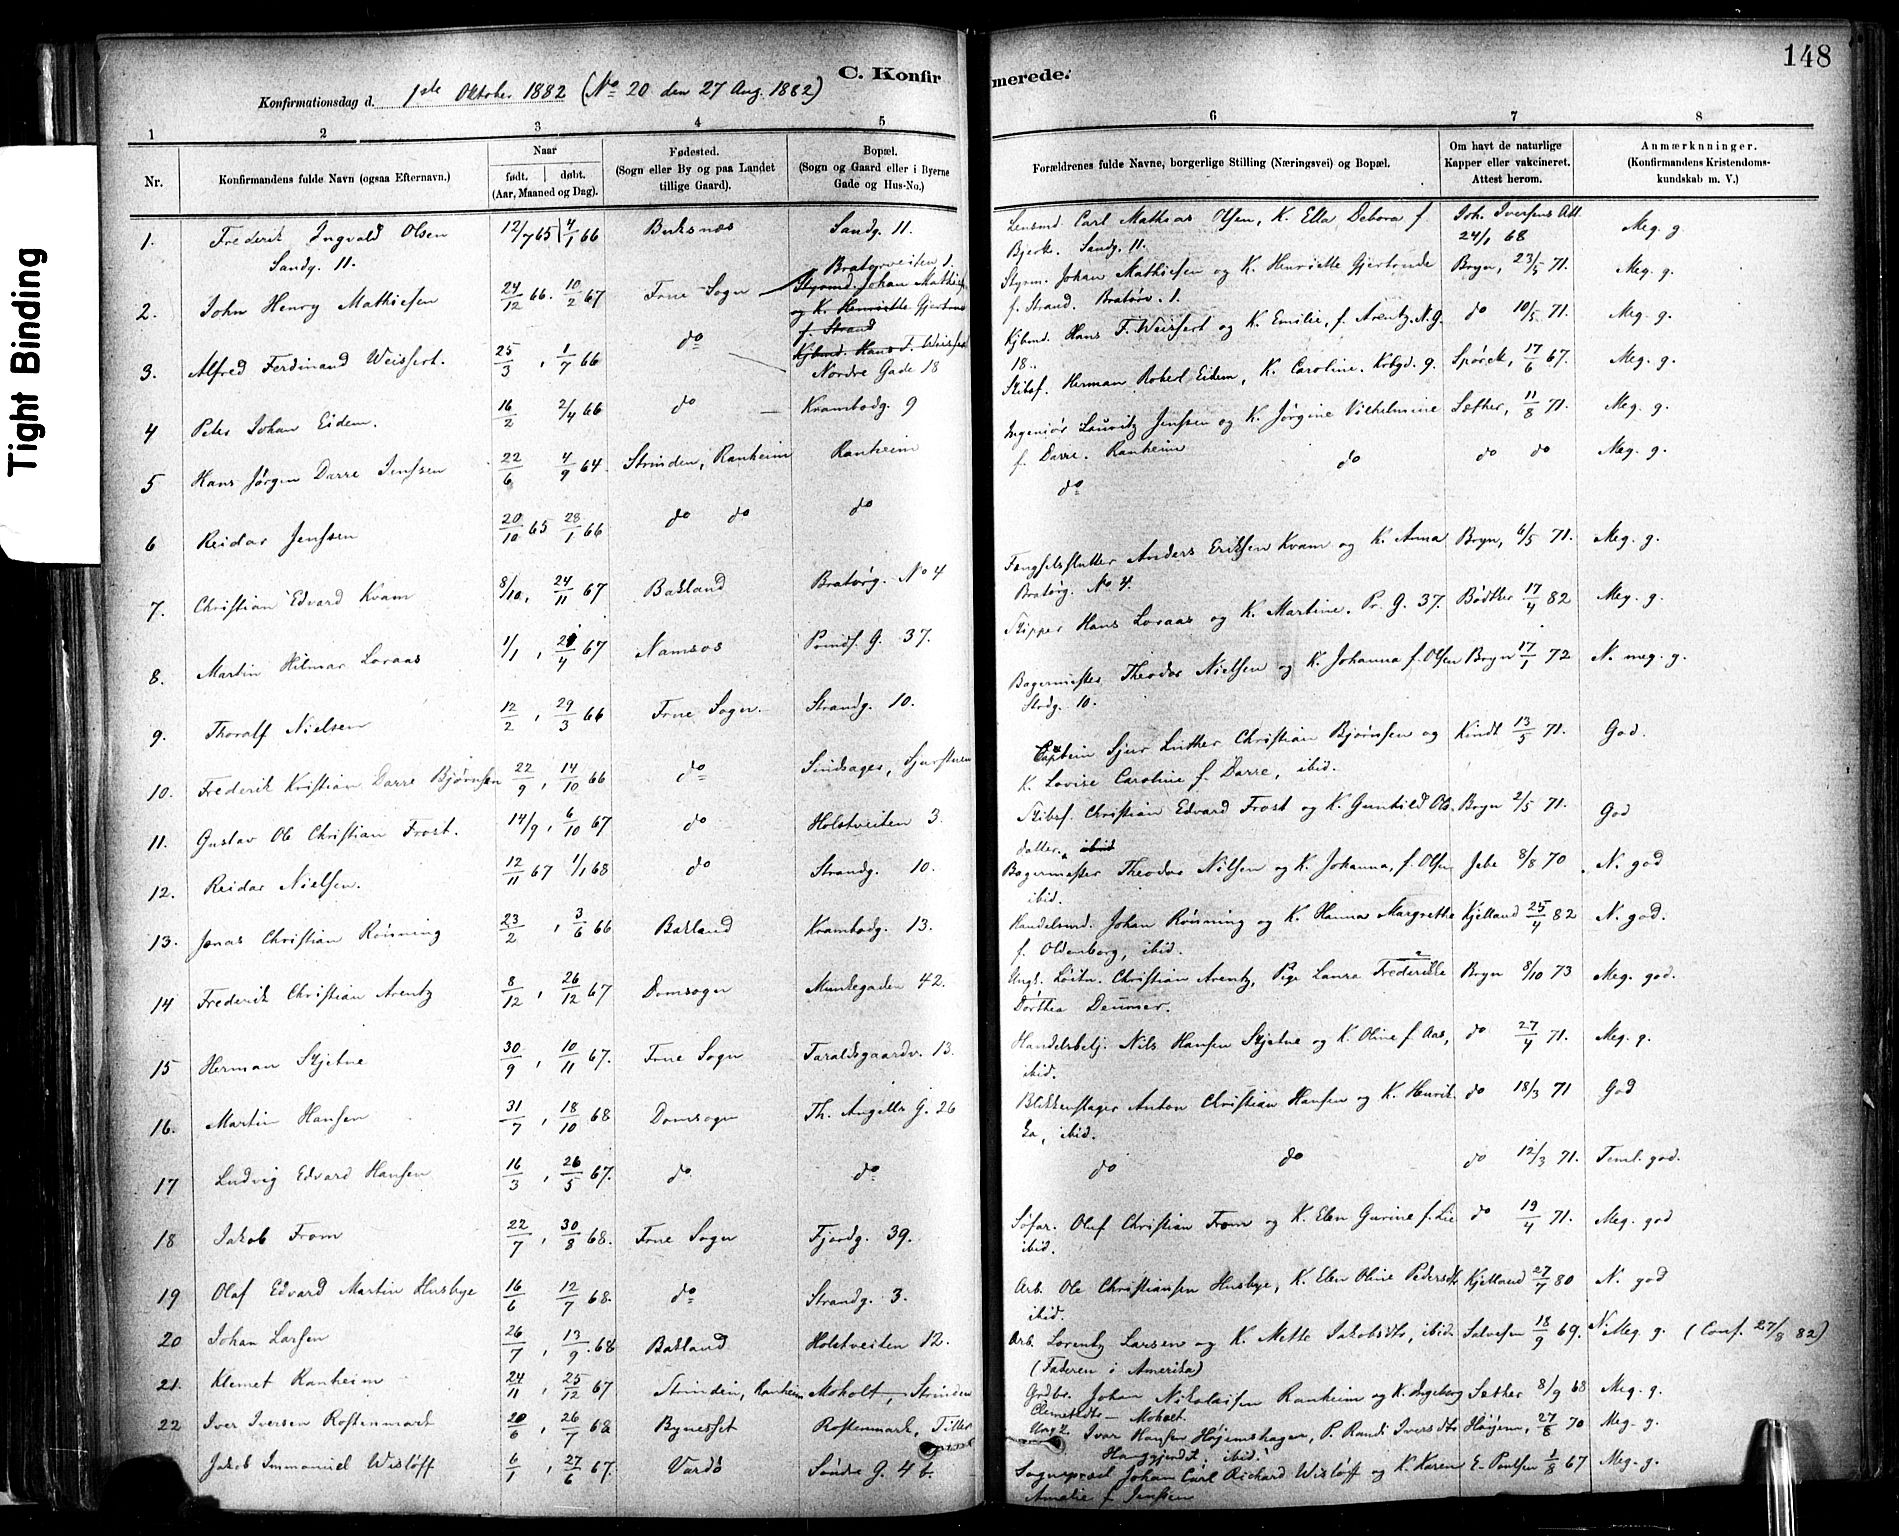 148
Tight Binding
C. Konfirmerede.
Konfirmationsdag d. 1ste Oktober 1882 (No 20 den 27 Aug. 1882)
1 2 3 4 5 6 7 8
Nr. Konfirmandens fulde Navn (ogsaa Efternavn). Naar født. døbt. (Aar, Maaned og Dag). Fødested. (Sogn eller By og paa Landet tillige Gaard). Bopæl. (Sogn og Gaard eller i Byerne Gade og Hus-No.) Forældrenes fulde Navne, borgerlige Stilling (Næringsvei) og Bopæl. Om havt de naturlige Kapper eller vakcineret. Attest herom. Anmærkninger. (Konfirmandens Kristendomskundskab m. V.)
1. Frederik Ingvald Olsen 12/7 65 4/1 66 Buksnæs Sandg. 11. Lensmd. Carl Mathias Olsen, K. Ella Debora f. Joh. Iversens Att. 24/1 68 Meg. g.
Sandg. 11. Bjerk. Sandg. 11.
2. John Henry Mathiesen 24/12 66. 10/2 67 Frue Sogn Bratørveiten 1. Styrmd. Johan Mathiesen og K. Henriette Gjertrude f. Strand Styrm. Johan Mathiesen og K. Henriette Gjertrude Bryn, 23/5 71. Meg. g.
f. Strand. Bratørv. 1.
3. Alfred Ferdinand Weissert. 25/3, 1/7 66 do Kjbmd. Hans F. Weissert Nordre Gade 18 Kjbmd. Hans F. Weissert og K. Emilie, f. Arentz. N. G. do 10/5 71. Meg. g.
18.
4 Peter Johan Eidem. 16/2 2/4 66 do Krambodg. 9 Skibsf. Herman Robert Eidem, K. Caroline. Krbgd. 9. Spørck, 17/6 67. Meg. g.
5 Hans Jørgen Darre Jenssen 22/6 4/9 64. Strinden, Ranheim Ranheim Ingeniør Lauritz Jenssen og K. Jørgine Vilhelmine Sæther, 11/8 71. Meg. g.
f. Darre. Ranheim
6 Reidar Jenssen 20/10 65 28/1 66 do do do do do do do Meg. g.
7. Christian Edvard Kvam 8/10, 24/11 67 Bakland Bratørg. No 4 Fængselsslutter Anders Eriksen Kvam og K. Anna Bryn, 6/5 71. Meg. g.
Bratørg. No 4.
8. Martin Hilmar Loraas 1/1, 4 67 Namsos Prinds. G. 37. Skipper Hans Loraas og K. Martine. Pr. G. 37. Bødtker 17/4 82 Meg. g.
9. Thoralf Nielsen 12/2, 29/3 66 Frue Sogn. Strandg. 10. Bagermester Theodor Nielsen og K. Johanna f. Olsen Bryn 17/1 72 N. meg. g.
Strdg. 10.
10. Frederik Kristian Darre Bjørnsen 22/9, 14/10 66 do Captein Sjur Luther Christian Bjørnsen og Kindt 13/5 71. God.
K. Lovise Caroline f. Darre, ibid.
11. Gustav Ole Christian Frost. 14/9, 6/10 67 do Holstveiten 3. Skibsf. Christian Edvard Frost og K. Gunhild Ols. Bryn 2/5 71. God
datter, ibid
12. Reidar Nielsen. 12/11 67 1/1 68 do Strandg. 10. Bagermester Theodor Nilsen og K. Johanna, f. Olsen Jebe 8/8 70 N. god
ibid.
13. Jonas Christian Rønning 23/2, 3/6 66 Bakland Krambodg. 13. Handelsmd. Johan Rønning og K. Hanna Margrethe Kjelland 25/4 82 N. god.
f. Oldenborg, ibid.
14 Frederik Christian Arentz 8/12, 26/12 67 Domsogn Munkegaden 42. Ungk. Løitn. Christian Arentz, Pige Laura Frederikke Bryn 8/10 73 Meg. god.
Dorthea Deumer.
15 Herman Skjetne 30/9, 10/11 67. Frue Sogn Taraldsgaardv. 13. Handelsbetj. Nils Hansen Skjetne og K. Oline f. Aas, do 27/4 71. Meg. g.
ibid.
16. Martin Hansen 31/7, 18/10 68 Domsogn Th. Angells G. 26 Blikkenslager Anton Christian Hansen og K. Henrik- do 18/3 71 God
ka, ibid.
17 Ludvig Edvard Hansen 16/3, 26/5 67. do do do do do 12/3 71. Teml. god.
18 Jakob From 22/7, 30/8 68. Frue Sogn Fjordg. 39. Søfar. Oluf Christian From og K. Elen Gurine f. Lie do 19/4 71. Meg. god
ibid.
19 Olaf Edvard Martin Husbye 16/6 12/7 68. do Strandg. 3. Arb. Ole Christiansen Husbye, K. Elen Oline Pedersdtr Kjelland 27/7 80 N. god
ibid.
20 Johan Larsen 26/7, 13/9 68 Bakland Holstveiten 12. Arb. Lorentz Larsen og K. Mette Jakobsdtr, ibid. Salvesen 18/9 69. N. Meg. g. (Conf. 27/8 82)
(Faderen i Amerika)
21. Klemet Ranheim 24/11, 25/12 67 Strinden, Ranheim Moholt, Strinden Grdbr. Johan Nikolaisen Ranheim og K. Ingeborg Sæther 8/9 68 Meg. g.
Clemetsdtr - Moholt.
22 Iver Iversen Rostenmark 20/6, 26/7 68 Bynesset Rostenmark, Tiller Ungk. Ivar Hansen Høiemshagen, P. Randi Iversdtr Høyem, 27/8 70 Meg. g.
ibid.
Jakob Immanuel Wisløff 6/1, 27/6 67. Vardø Søndre G. 4 b. Sogneprest Johan Carl Richard Wisløff og K. Karen E. Poulsen 1/8 67 Meg. g.
Amalie f. Jenssen